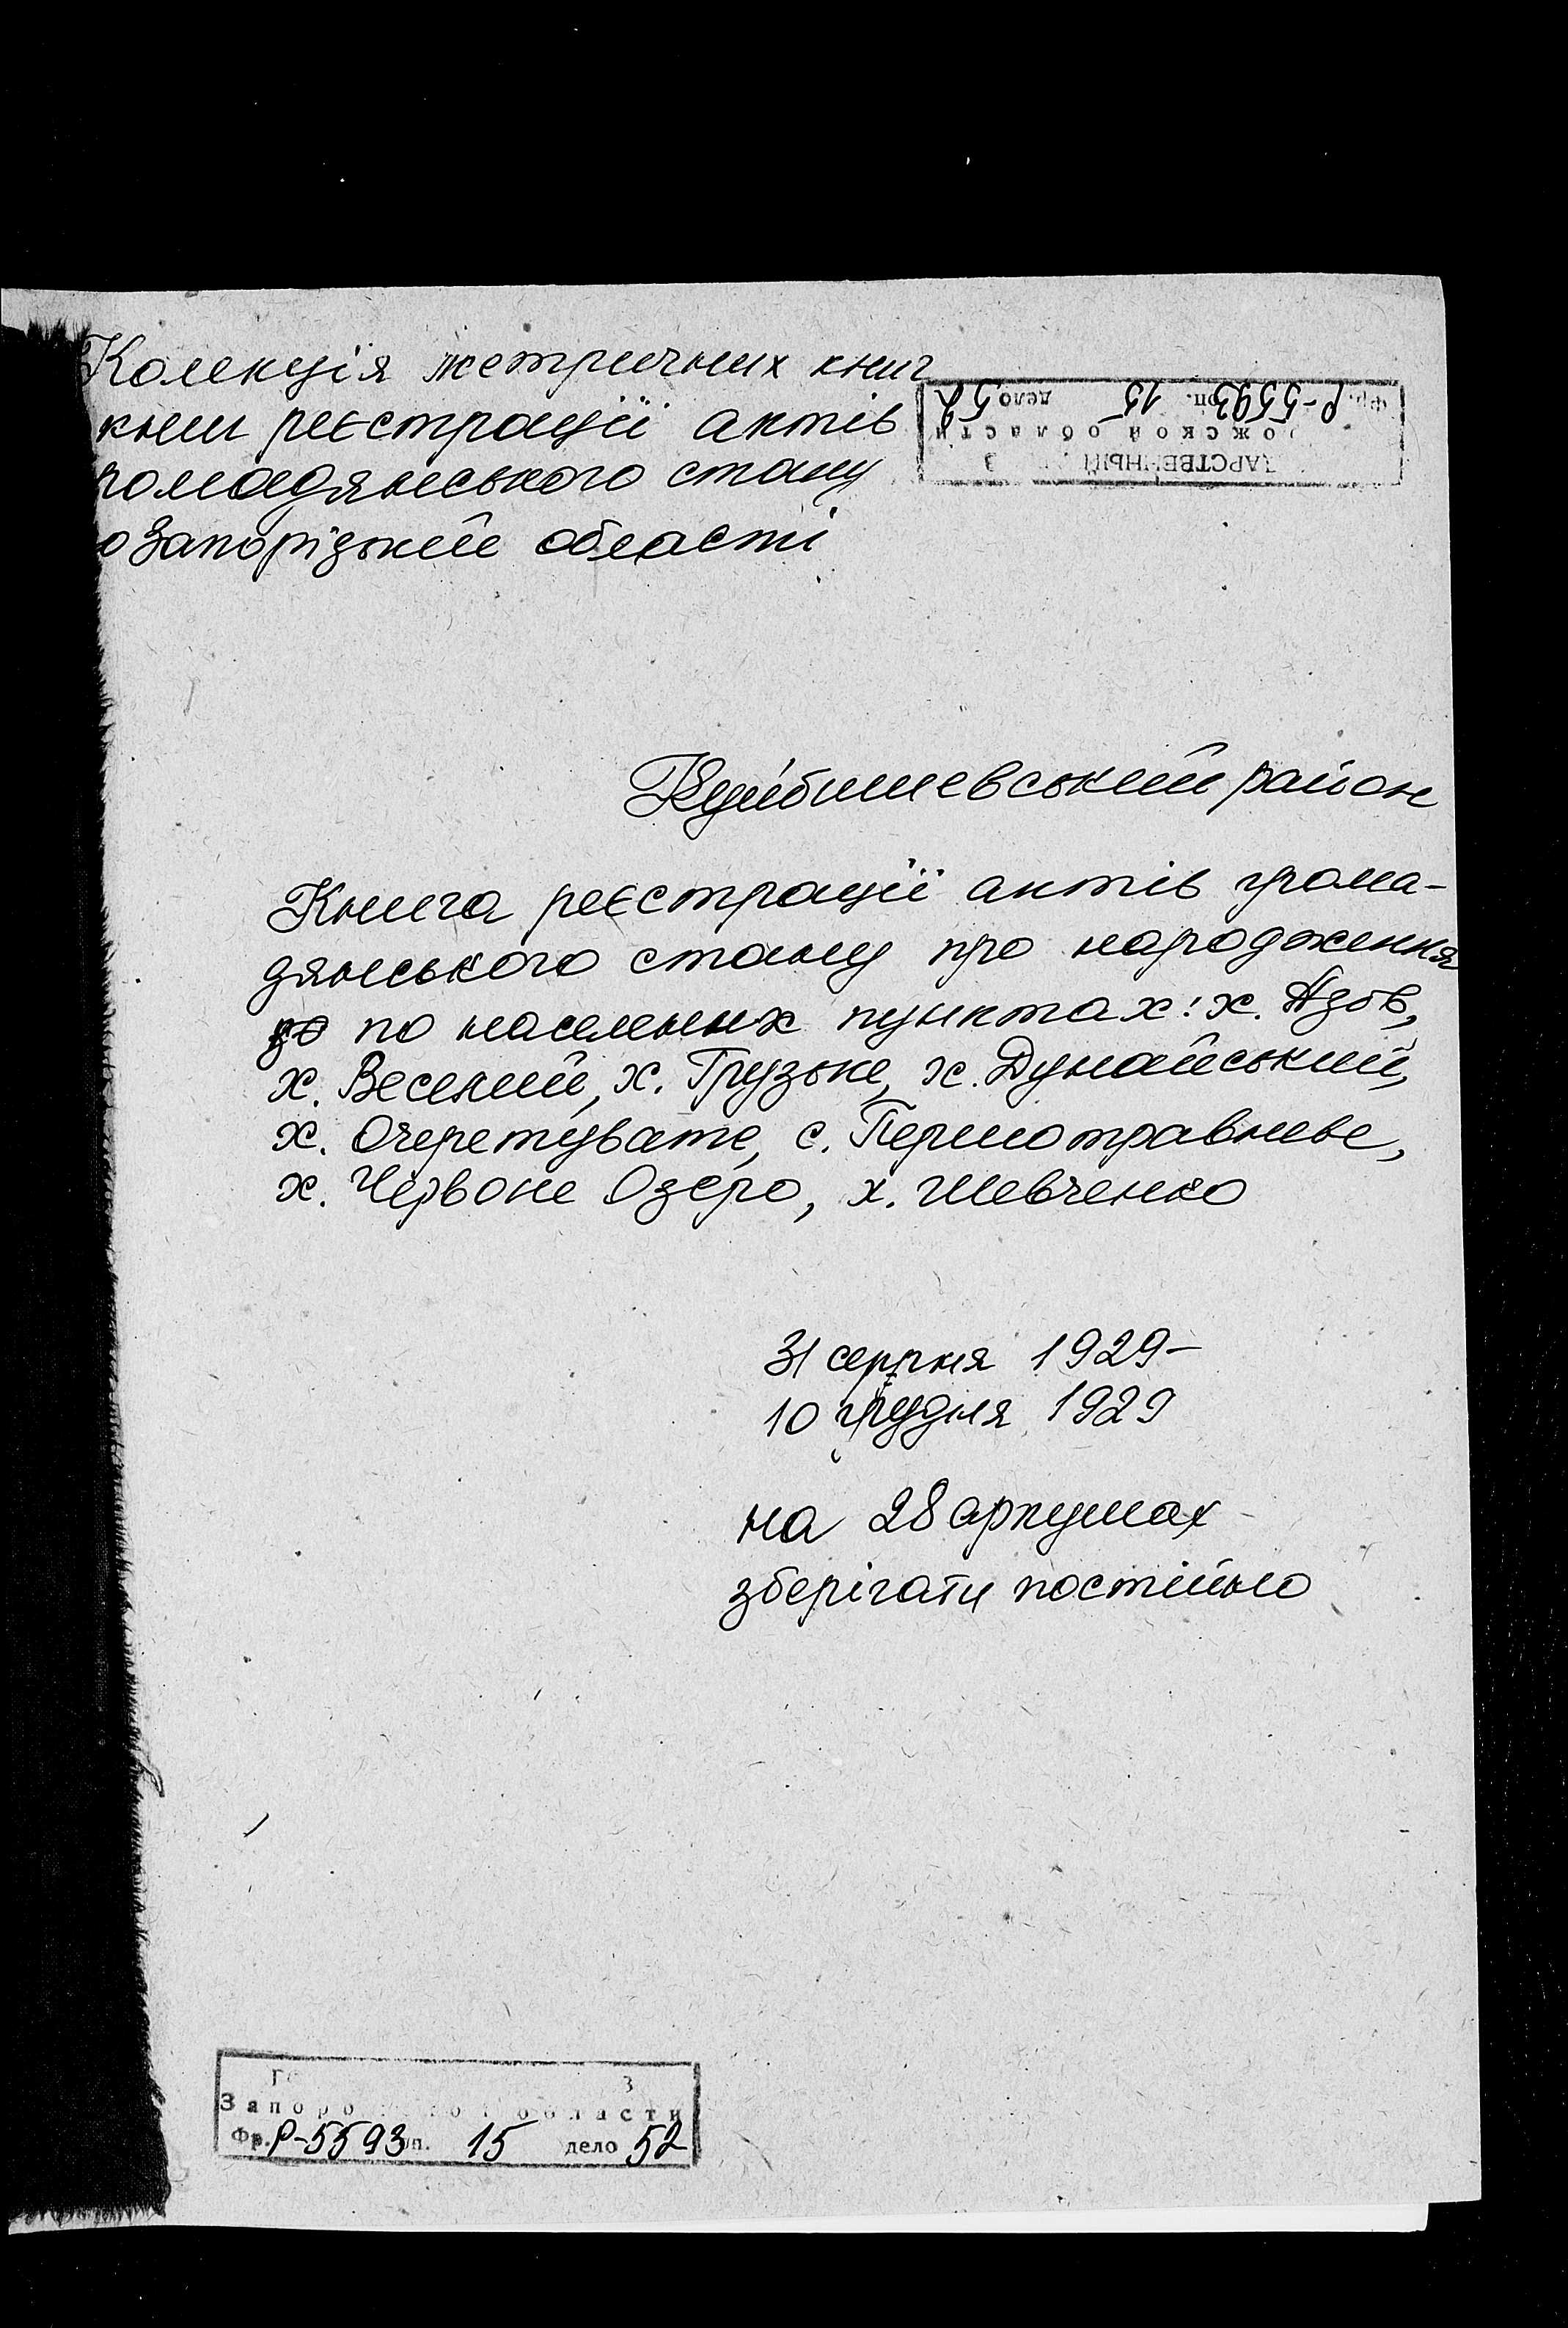 Колекція метричних книг
книг реєстрації актів
ромадянського стану
о Запорізькій області
ДАРСТВЕННЫЙ
ожской области
Фр. Р-5593 оп. 15 дело 52
Куйбишевський район
Книга реєстрації актів грома-
дянського стану про народження
по населених пунктах: х. Азов,
х. Веселий, х. Грузьке, х. Дунайський,
х. Очеретувате, с. Першотравневе,
х. Червоне Озеро, х. Шевченко
31 серпня 1929-
10 грудня 1929
на 28 аркушах
зберігати постійно
Запоро области
Фр. Р-5593 оп. 15 дело 52